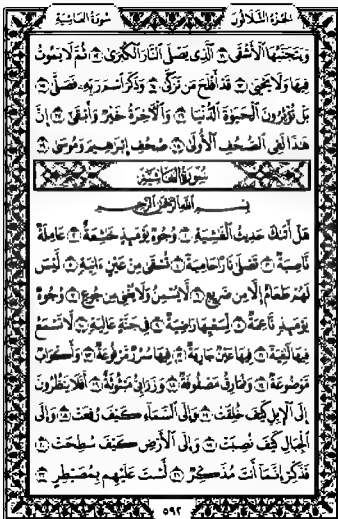 سورة الغاشية الجزء الثلاثون
ويتجنبها الأشقى ١١ الذي يصلى النار الكبرى ١٢ ثم لا يموت
فيها ولا يحيى ١٣ قد أفلح من تزكى ١٤ وذكر اسم ربه فصلى ١٥
بل تؤثرون الحيوة الدنيا ١٦ والآخرة خير وأبقى ١٧ إن
هذا لفي الصحف الأولى ١٨ صحف إبرهيم وموسى ١٩
سورة الغاشية
بسم الله الرحمن الرحيم
هل أتىك حديث الغشية ١ وجوه يومئذ خشعة ٢ عاملة
ناصبة ٣ تصلى نارا حامية ٤ تسقى من عين ءانية ٥ ليس
لهم طعام إلا من ضريع ٦ لا يسمن ولا يغني من جوع ٧ وجوه
يومئذ ناعمة ٨ لسعيها راضية ٩ في جنة عالية ١٠ لا تسمع
فيها لغية ١١ فيها عين جارية ١٢ فيها سرر مرفوعة ١٣ وأكواب
موضوعة ١٤ ونمارق مصفوفة ١٥ وزرابي مبثوثة ١٦ أفلا ينظرون
إلى الإبل كيف خلقت ١٧ وإلى السماء كيف رفعت ١٨ وإلى
الجبال كيف نصبت ١٩ وإلى الأرض كيف سطحت ٢٠
فذكر إنما أنت مذكر ٢١ لست عليهم بمصيطر ٢٢
٥٩٢